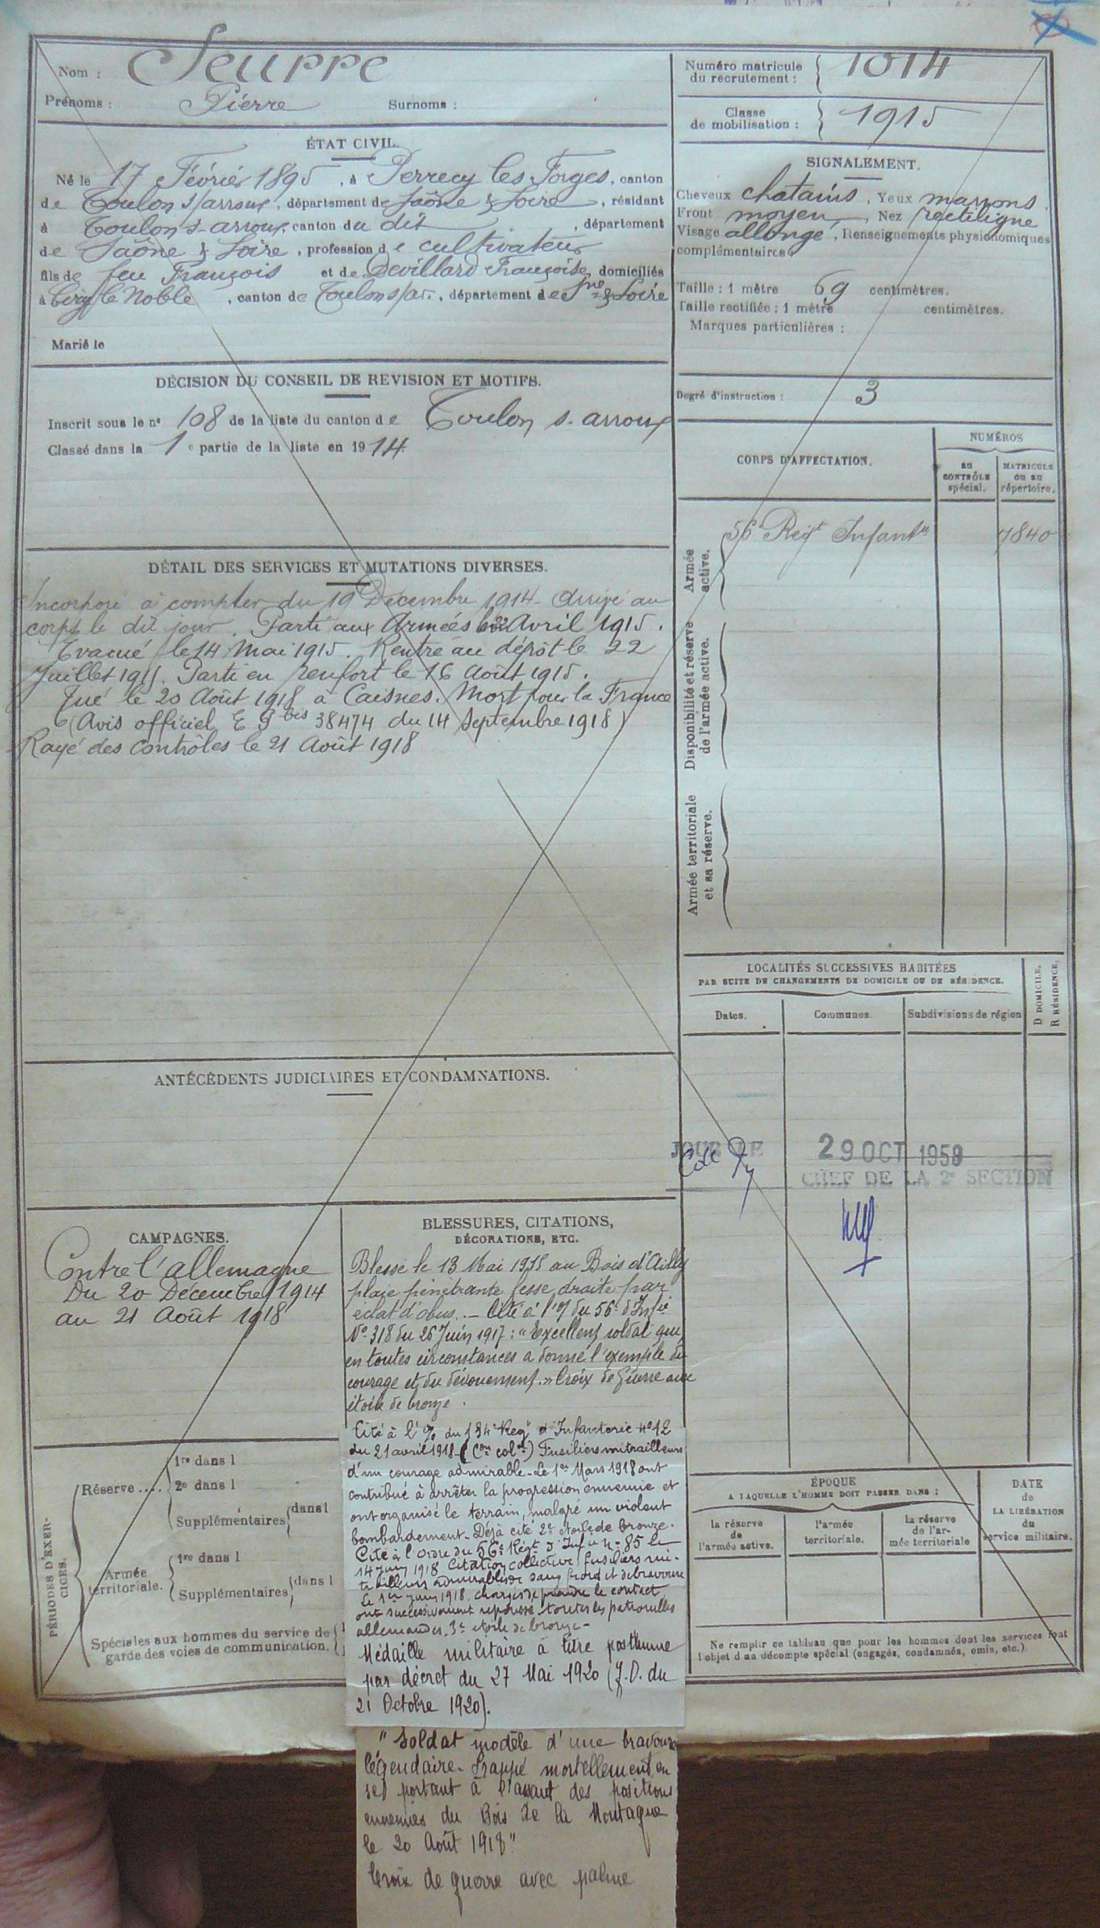 Nom : Seurre
Prénoms : Pierre Surnoms :
Numéro matricule du recrutement : 1014
Classe de mobilisation : 1915
ÉTAT CIVIL.
Né le 17 Février 1895, à Perrecy les Forges, canton
de Toulon s/arroux, département de Saône & Loire, résidant
à Toulon s. arroux, canton du dit, département
de Saône & Loire, profession de cultivateur
fils de feu François et de Devillard Françoise, domiciliés
à Ciry le Noble, canton de Toulon s/ar., département de Sne & Loire
Marié le
SIGNALEMENT.
Cheveux chatains, Yeux marrons.
Front moyen, Nez rectiligne
Visage allongé, Renseignements physionomiques
complémentaires
Taille : 1 mètre 69 centimètres.
Taille rectifiée : 1 mètre centimètres.
Marques particulières :
Degré d'instruction : 3
DÉCISION DU CONSEIL DE REVISION ET MOTIFS.
Inscrit sous le nº 108 de la liste du canton de Toulon s. arroux
Classé dans la 1e partie de la liste en 1914.
CORPS D'AFFECTATION.
NUMÉROS
AU CONTRÔLE spécial.
MATRICULE OU AU répertoire.
Armée active.
56e Regt Infantie 7840
Disponibilité et réserve de l'armée active.
Armée territoriale et sa réserve.
DÉTAIL DES SERVICES ET MUTATIONS DIVERSES.
Incorporé à compter du 19 Décembre 1914. Arrivé au
corps le dit jour. Parti aux Armées le Avril 1915.
Evacué le 14 Mai 1915. Rentré au dépôt le 22
Juillet 1915. Parti en renfort le 16 Août 1915.
Tué le 20 Août 1918 à Caisnes. Mort pour la France
(Avis officiel E G bis 38474 du 14 Septembre 1918)
Rayé des contrôles le 21 Août 1918
LOCALITÉS SUCCESSIVES HABITÉES
PAR SUITE DE CHANGEMENTS DE DOMICILE OU DE RÉSIDENCE.
Dates. Communes. Subdivisions de région
D DOMICILE.
R RÉSIDENCE.
ANTÉCÉDENTS JUDICIAIRES ET CONDAMNATIONS.
29 OCT 1959
CHEF DE LA 2e SECTION
CAMPAGNES.
Contre l'allemagne
Du 20 Décembre 1914
au 21 Août 1918
BLESSURES, CITATIONS,
DÉCORATIONS, ETC.
Blessé le 13 Mai 1915 au Bois d'Ailly
plaie pénétrante fesse droite par
éclat d'obus. – Cité à l'O/ du 56e d'Infie
Nº 318 du 26 Juin 1917 : "Excellent soldat qui
en toutes circonstances a donné l'exemple du
courage et du dévouement." Croix de Guerre avec
étoile de bronze.
Cité à l'O/ du 134e Regt d'Infanterie nº 12
du 21 avril 1918 (Con colve) Fusiliers mitrailleurs
d'un courage admirable. Le 1er Mars 1918 ont
contribué à arrêter la progression ennemie et
ont organisé le terrain, malgré un violent
bombardement. Déjà cité 2e étoile de bronze.
Cité à l'Ordre du 56e Régt d'Infie nº 85 le
14 juin 1918 Citation collective. Fusiliers mi-
trailleurs admirables de sang froid et de bravoure
Le 1er juin 1918 chargés de prendre le contact
ont successivement repoussé toutes les patrouilles
allemandes. 3e étoile de bronze.
Médaille militaire à titre posthume
par décret du 27 Mai 1920 (J.O. du
21 Octobre 1920).
"Soldat modèle d'une bravoure
légendaire. Frappé mortellement en
se portant à l'assaut des positions
ennemies du Bois de la Montagne
le 20 Août 1918"
Croix de guerre avec palme
PÉRIODES D'EXERCICES.
Réserve
1re dans l
2e dans l
Supplémentaires dans l
Armée territoriale.
1re dans l
Supplémentaires dans l
Spéciales aux hommes du service de
garde des voies de communication.
ÉPOQUE
A LAQUELLE L'HOMME DOIT PASSER DANS :
la réserve de l'armée active.
l'armée territoriale.
la réserve de l'armée territoriale
DATE
de
LA LIBÉRATION
du
service militaire.
Ne remplir ce tableau que pour les hommes dont les services font
l'objet d'un décompte spécial (engagés, condamnés, omis, etc.).